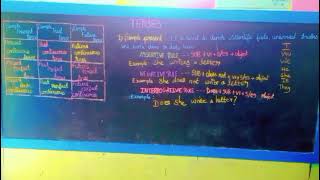 TENSES
Simple Present
Simple Past
Simple Future
Present continuous
Past continuous
Future continuous
Present Perfect
Past Perfect
Present Perfect continuous
Past Perfect continuous
1) Simple present : It is used to denote scientific facts, universal truths
and work done
ASSERTIVE RULE - SUB + V1 + S/ES + object
Example: She writing a letter?
NEGATIVE RULE - SUB + does not + V1 + S/ES + object
Example: She does not write a letter.
INTERROGATIVE RULE - Does + SUB + V1 + S/ES + object
Example:
Does She write a letter?
I
You
We
He
She
It
They